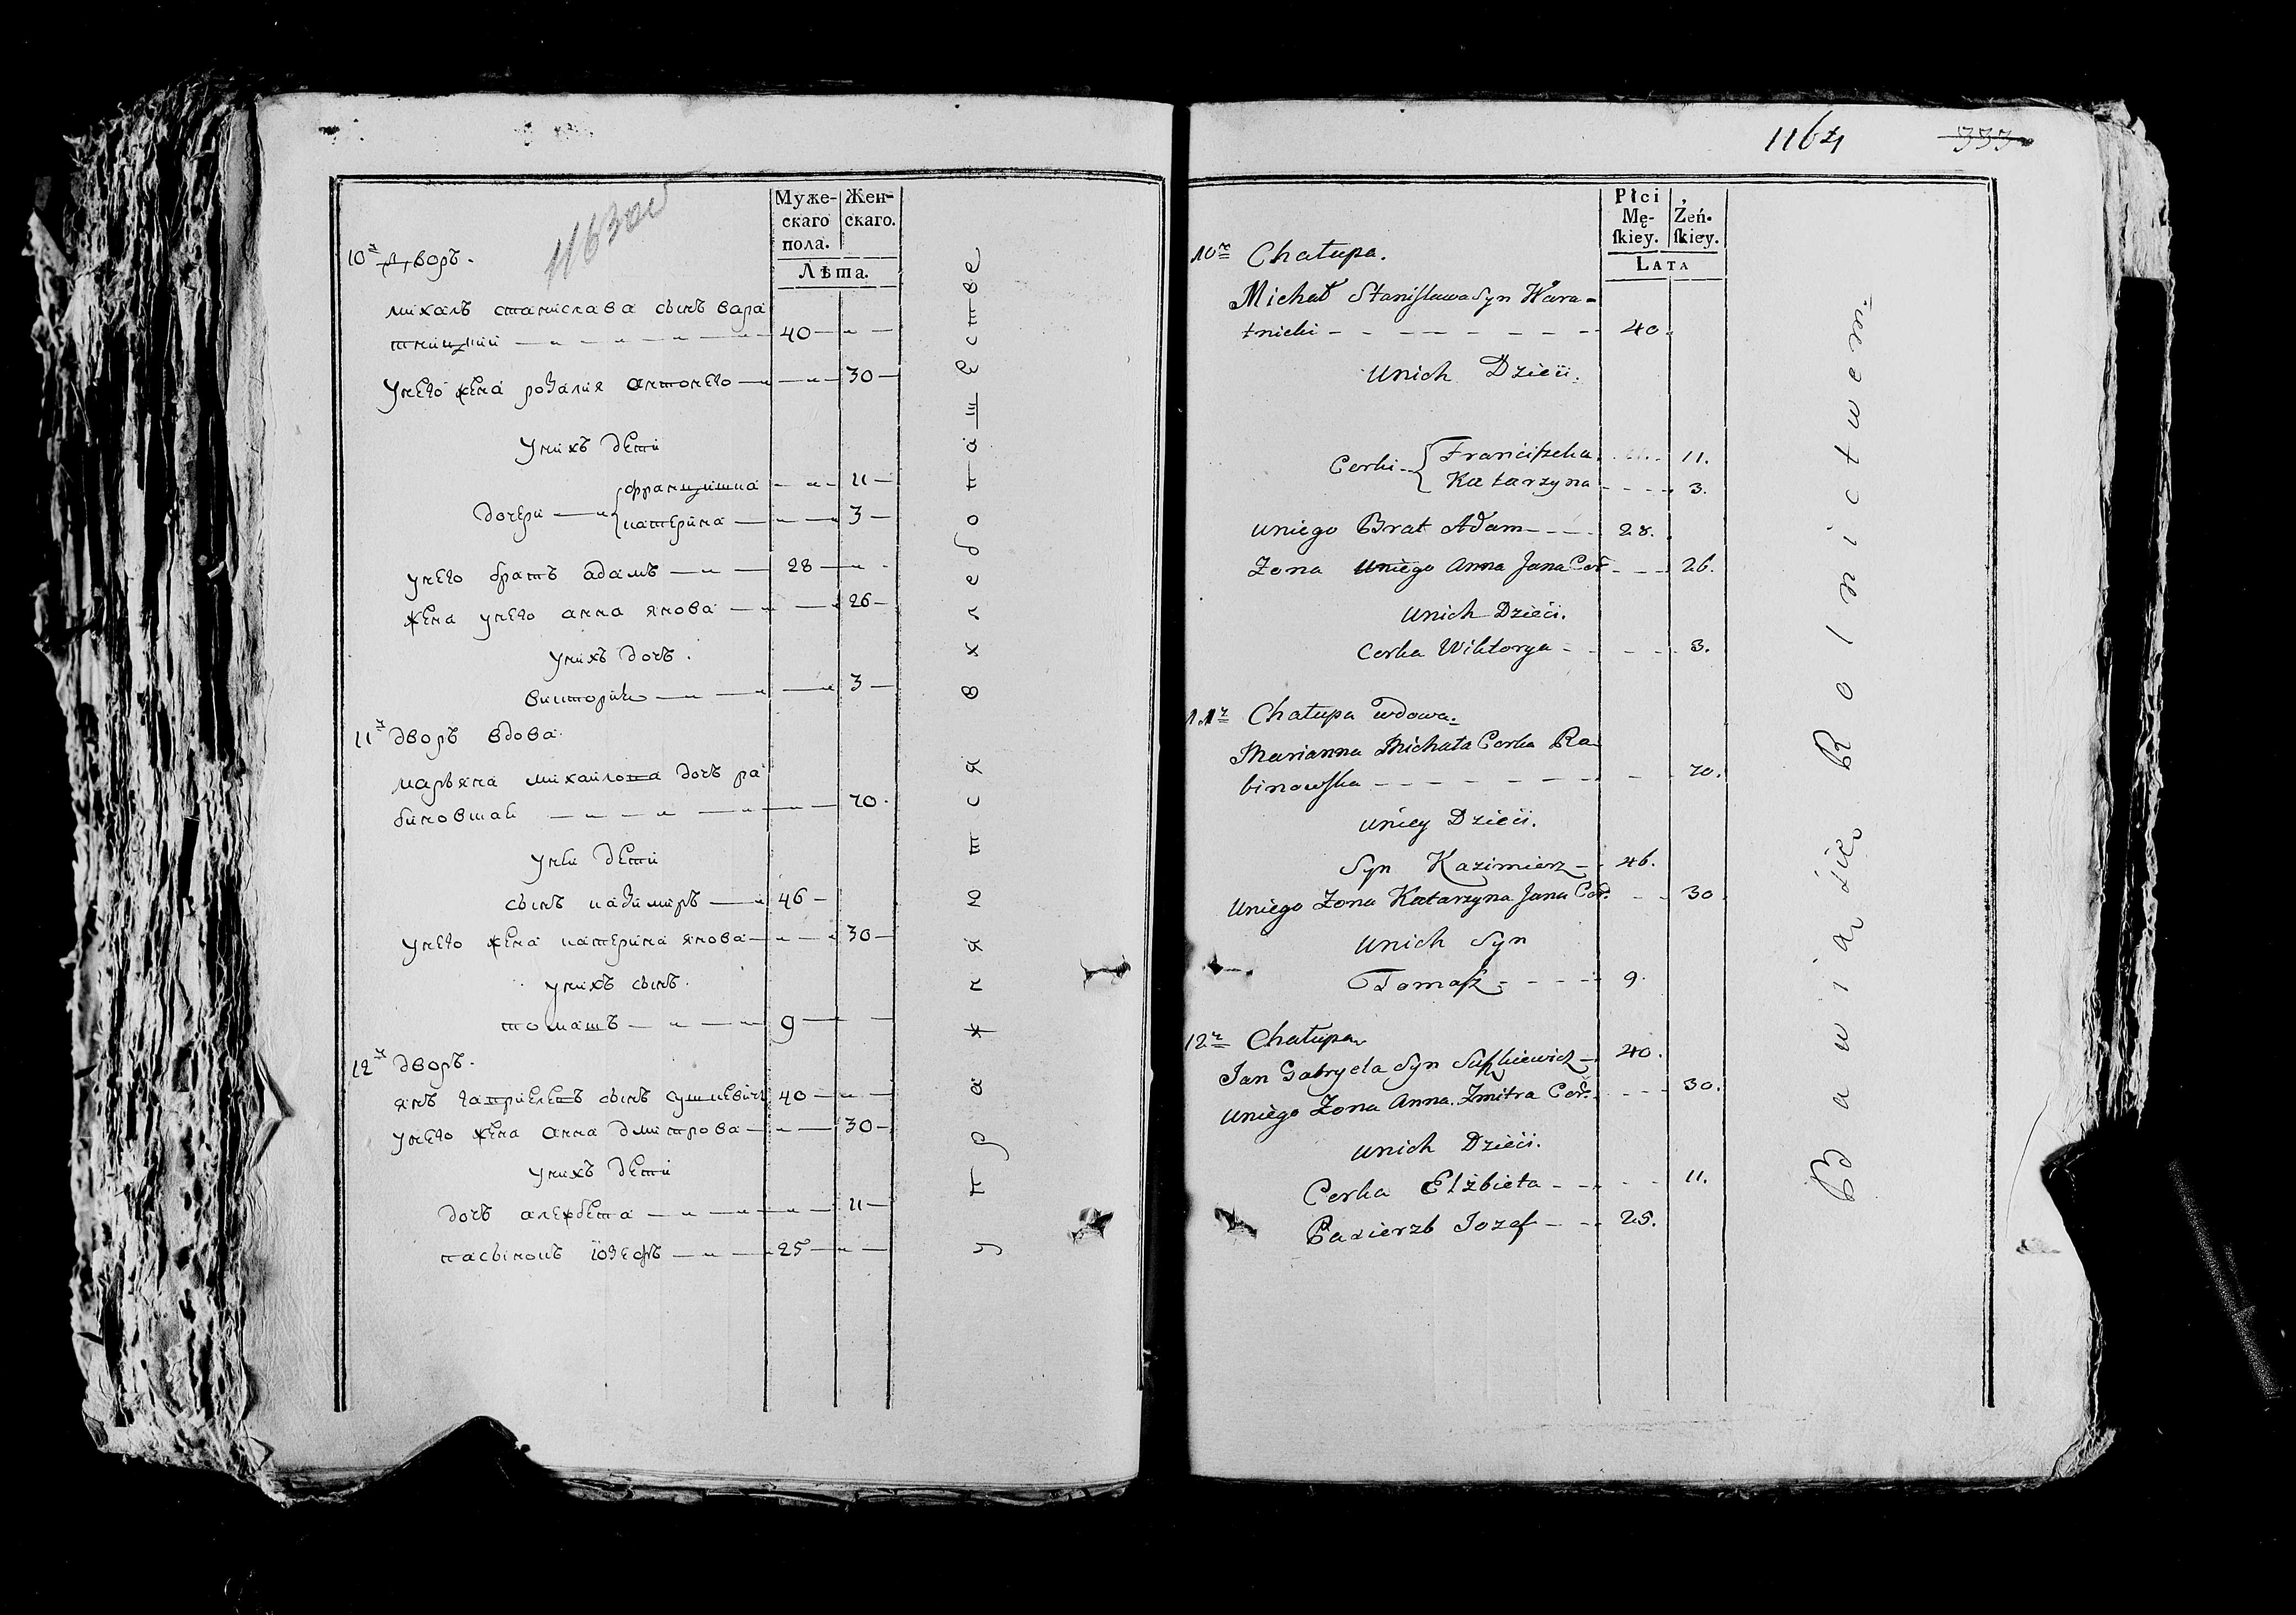 1163 об
Муже-
скаго
пола.
Жен-
скаго.
Лѣта.
10й Дворъ.
михалъ станислава сынъ вара
тницкий 40
Унего жена розалия антонего 30
Унихъ дети
дочери францишка 11
катерина 3
унего братъ адамъ 28
жена унего анна янова 26
Унихъ дочъ.
викторыя 3
11й дворъ вдова.
маръяна михайлова дочъ ра
биновшая 70
Унеи дети
сынъ казимиръ 46
унего жена катерина янова 30
унихъ сынъ.
томашъ 9
12й дворъ.
янъ гаприелевъ сынъ сушкевичъ 40
унего жена анна дмитрова 30
унихъ дети
дочъ алежбета 11
пасынокъ юзефъ 25
упражняются вхлебопашестве
1164
333
Płci
Mę-
ſkiey.
Żeń-
ſkiey.
LATA
10ta Chałupa.
Michał Staniſława Syn Wara-
tnicki 40.
Unich Dzieci.
Corki Franciſzka 11.
Katarzyna 3.
Uniego Brat Adam 28.
Zona Uniego Anna Jana Cor 26.
Unich Dzieci.
Corka Wiktorya 3.
11ta Chałupa wdowa.
Marianna Michała Corka Ra
binowſka 70.
Uniey Dzieci.
Syn Kazimierz 46.
Uniego Zona Katarzyna Jana Cor. 30
Unich Syn
Tomaſz 9.
12ta Chałupa
Jan Gabryela Syn Suſzkiewicz 40.
Uniego Zona Anna Zmitra Cor. 30.
Unich Dzieci.
Corka Elżbieta 11.
Pasierzb Jozef 25.
Bawią się Rolnictwem